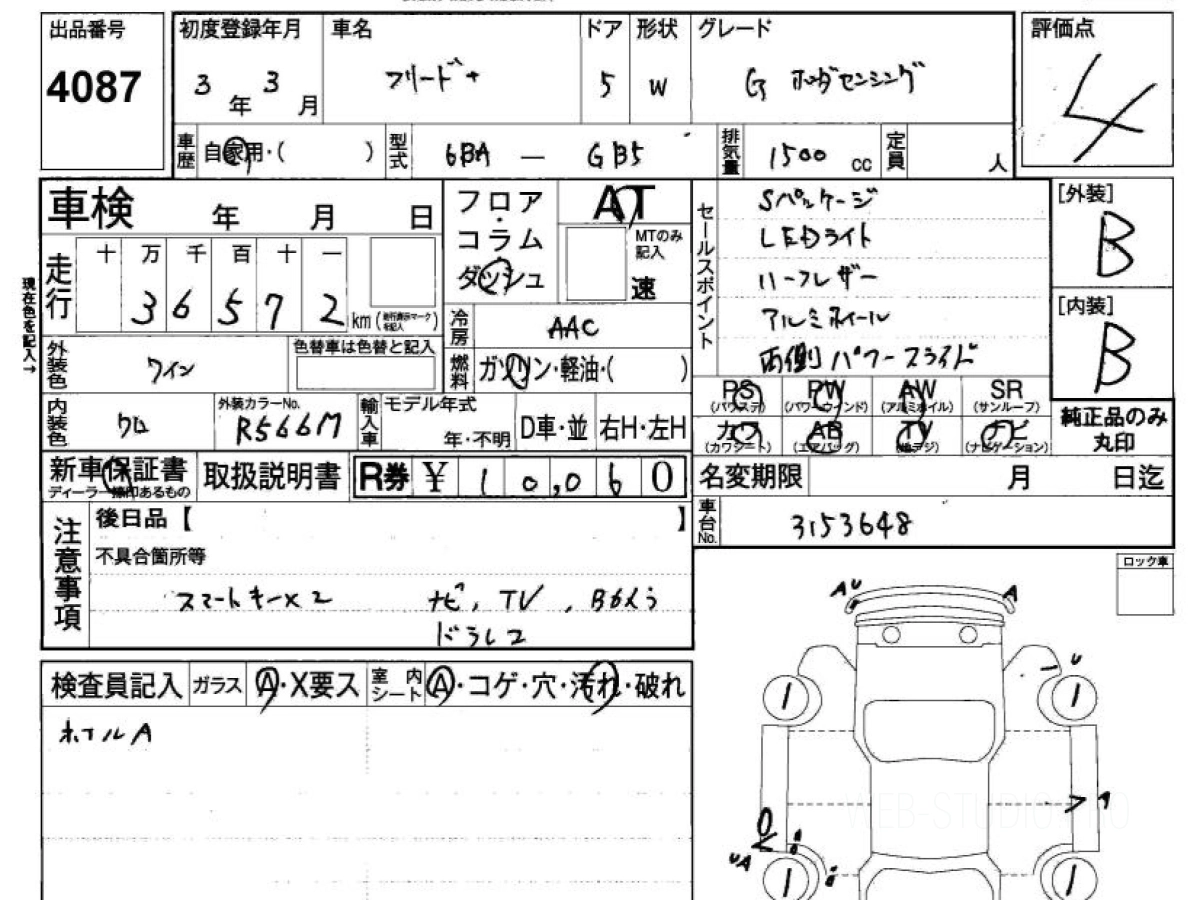 出品番号 初度登録年月 車名 ドア 形状 グレード 評価点
4087 3年 3月 フリード+ 5 W G ホンダセンシング 4
車歴 自家用・( ) 型式 6BA — GB5 排気量 1500 cc 定員 人
車検 年 月 日 フロア・コラム ダッシュ AT MTのみ記入 速
セールスポイント
Sパッケージ
LEDライト
ハーフレザー
アルミホイール
両側パワースライド
[外装] B
[内装] B
現在色を記入→
走行 十 万 千 百 十 一
36572 km
冷房 AAC
外装色 ワイン 色替車は色替と記入 燃料 ガソリン・軽油・( )
内装色 クロ 外装カラーNo. R566M 輸入車 モデル年式 年・不明 D車・並 右H・左H
PS (パワステ) PW (パワーウインド) AW (アルミホイル) SR (サンルーフ)
カワ (カワシート) AB (エアバッグ) TV (地デジ) ナビ (ナビゲーション)
純正品のみ丸印
新車保証書 ディーラー捺印あるもの 取扱説明書 R券 ¥ 10,060 名変期限 月 日迄
車台No. 3153648
注意事項 後日品【 】
不具合箇所等
スマートキーx2 ナビ, TV, Bカメラ
ドラレコ
ロック車
AU A
U
1 1
検査員記入 ガラス A・X要ス 室内シート A・コゲ・穴・汚れ・破れ
ホイルA
WEB-STUDIO.PRO
UA
1 1